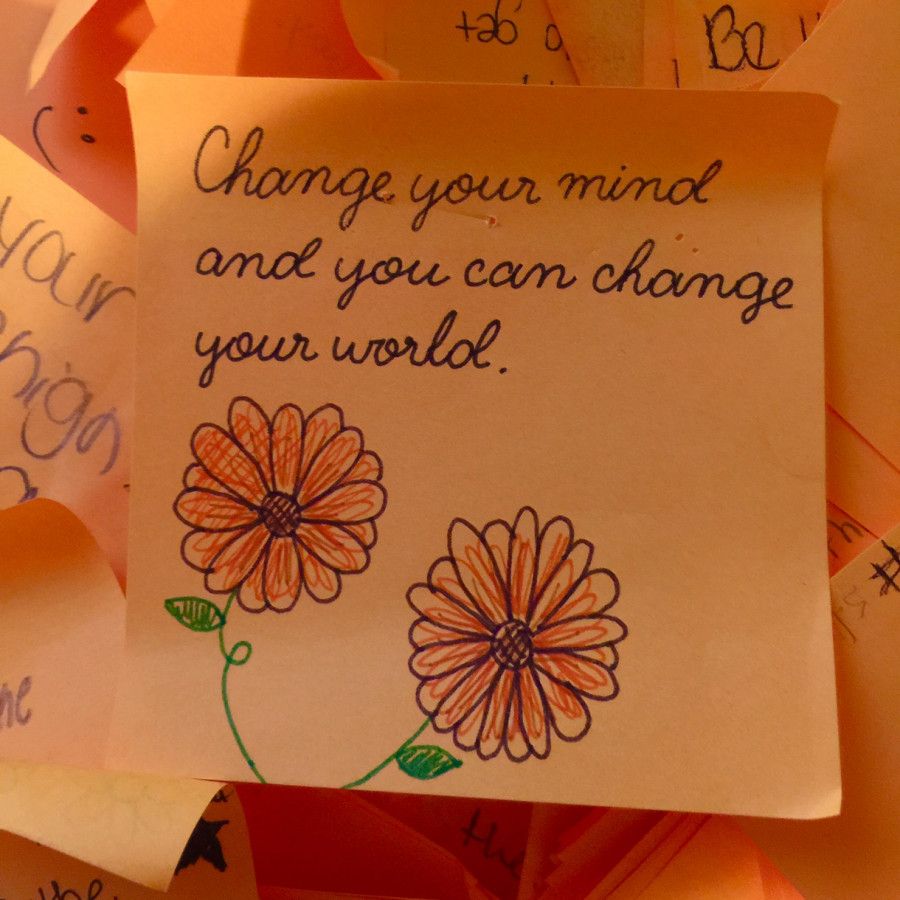 Be
Change your mind
and you can change
your world.
your
the